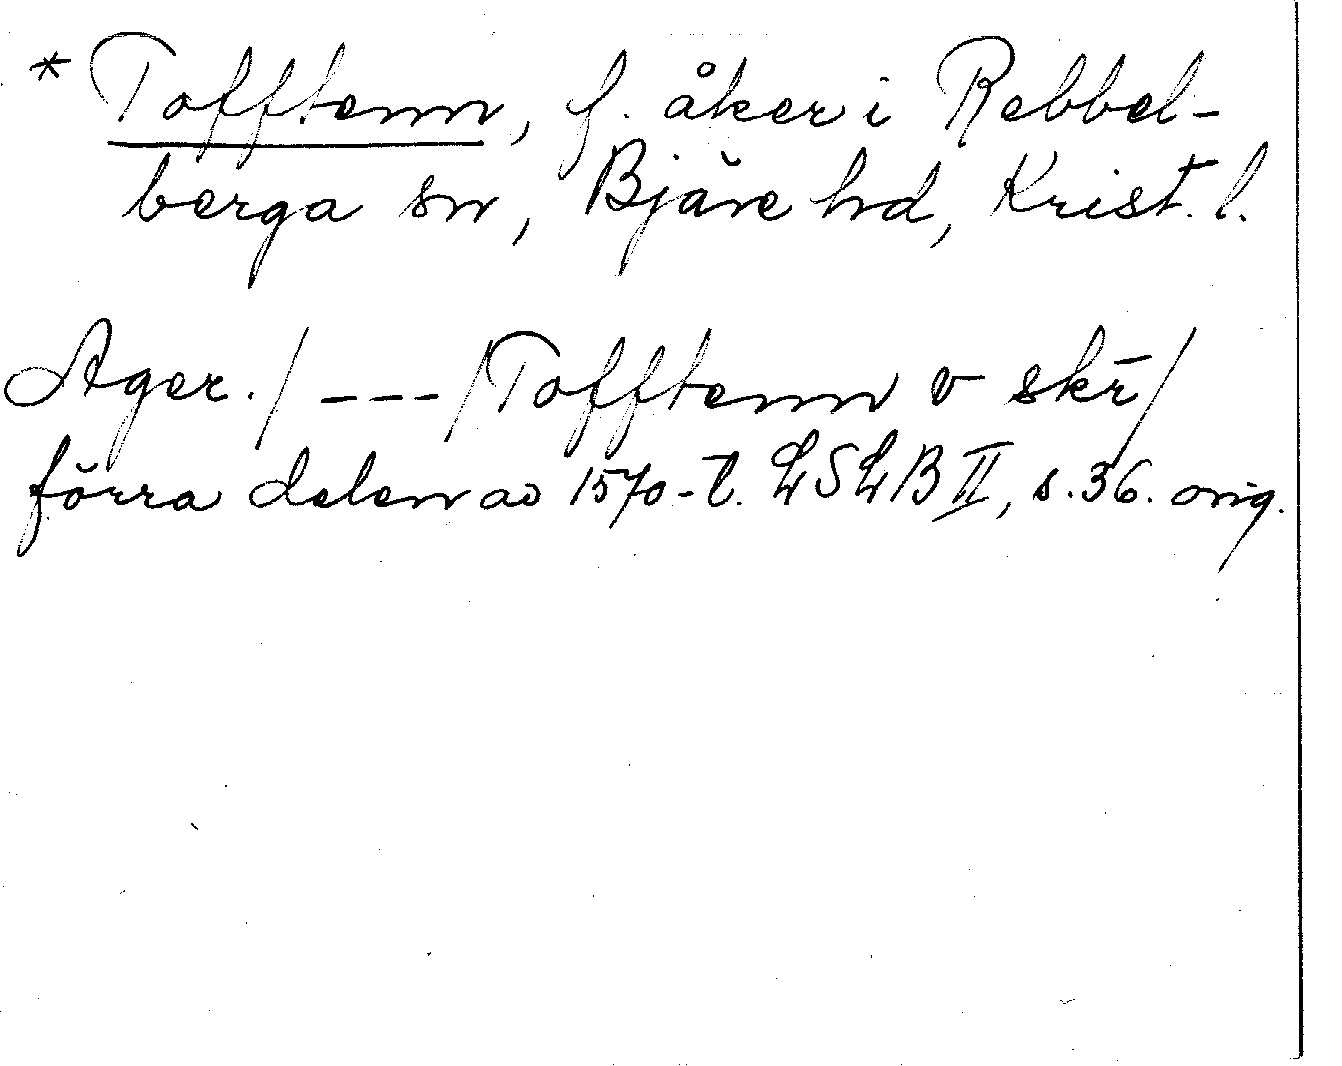 * Tofftenn, f. åker i Rebbel-
berga sn, Bjäre hd, Krist. l.
Ager./ --- /Tofftenn v skr/
förra delen av 1570-t. LSLB II, s. 36. orig.